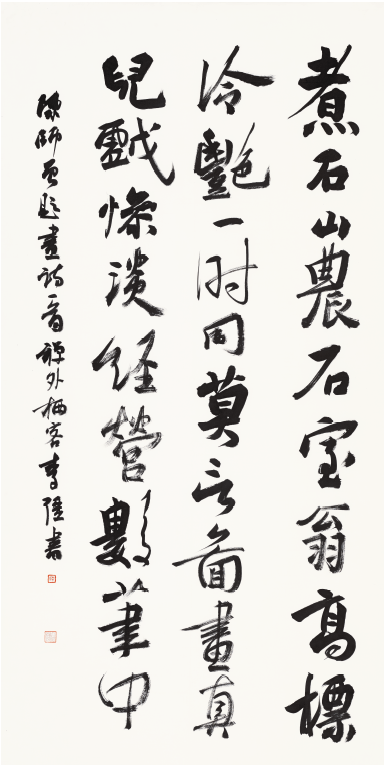 煮石山農石室翁高標
冷艷一時同莫言圖畫真
兒戲慘淡經營數筆中
陳師曾題畫詩一首禪外栖客李書